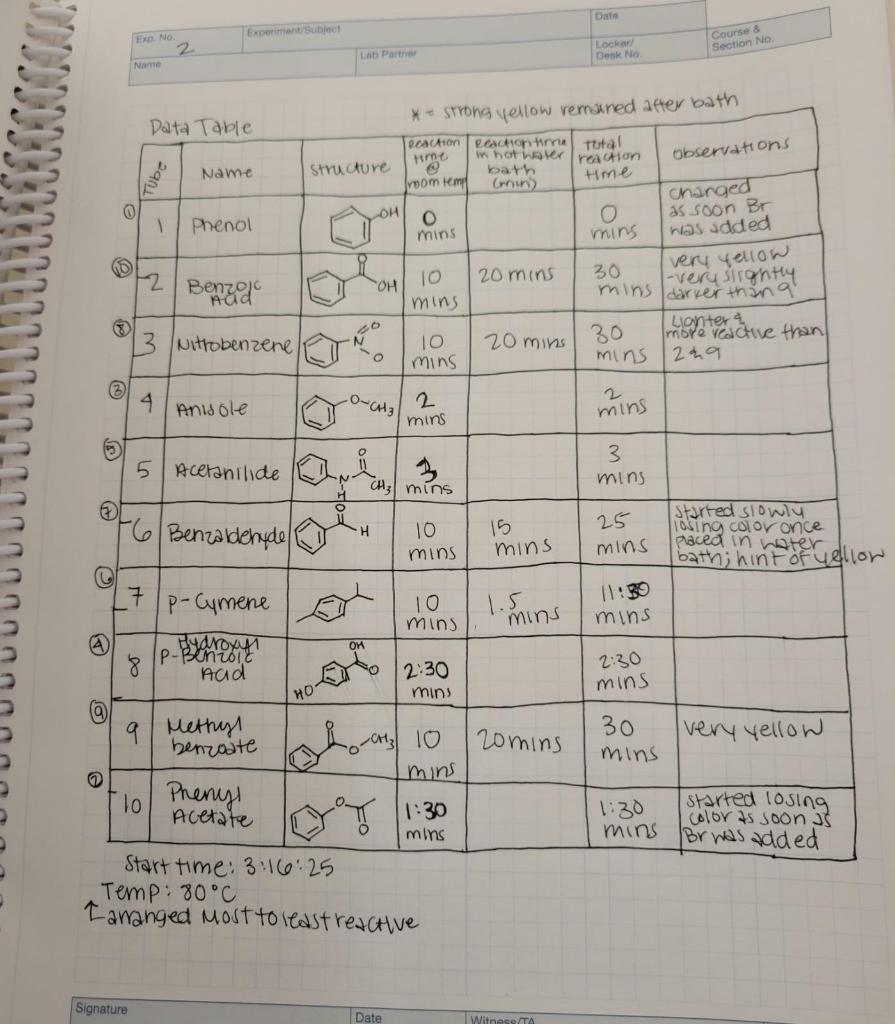 Exp. No. 2 Experiment/Subject Date
Name Lab Partner Locker/ Desk No. Course & Section No.
* = strong yellow remained after bath
Data Table
Tube Name structure Reaction time @ room temp Reaction time in hot water bath (min) Total reaction time observations
① 1 Phenol OH 0 mins 0 mins changed as soon Br was added
⑩ 2 Benzoic Acid O OH 10 mins 20 mins 30 mins very yellow -very slightly darker than 9
⑧ 3 Nitrobenzene N O O 10 mins 20 mins 30 mins Lighter & more reactive than 2 & 9
③ 4 Anisole O-CH3 2 mins 2 mins
⑤ 5 Acetanilide O N H CH3 3 mins 3 mins
⑦ 6 Benzaldehyde O H 10 mins 15 mins 25 mins started slowly losing color once placed in water bath; hint of yellow
⑥ 7 p-Cymene 10 mins 1.5 mins 11:30 mins
④ 8 Hydroxyl P-Benzoic Acid OH O HO 2:30 mins 2:30 mins
⑨ 9 Methyl benzoate O O-CH3 10 mins 20 mins 30 mins very yellow
② 10 Phenyl Acetate O O 1:30 mins 1:30 mins started losing color as soon as Br was added
Start time: 3:16:25
Temp: 80°C
↑ arranged most to least reactive
Signature Date Witness/TA